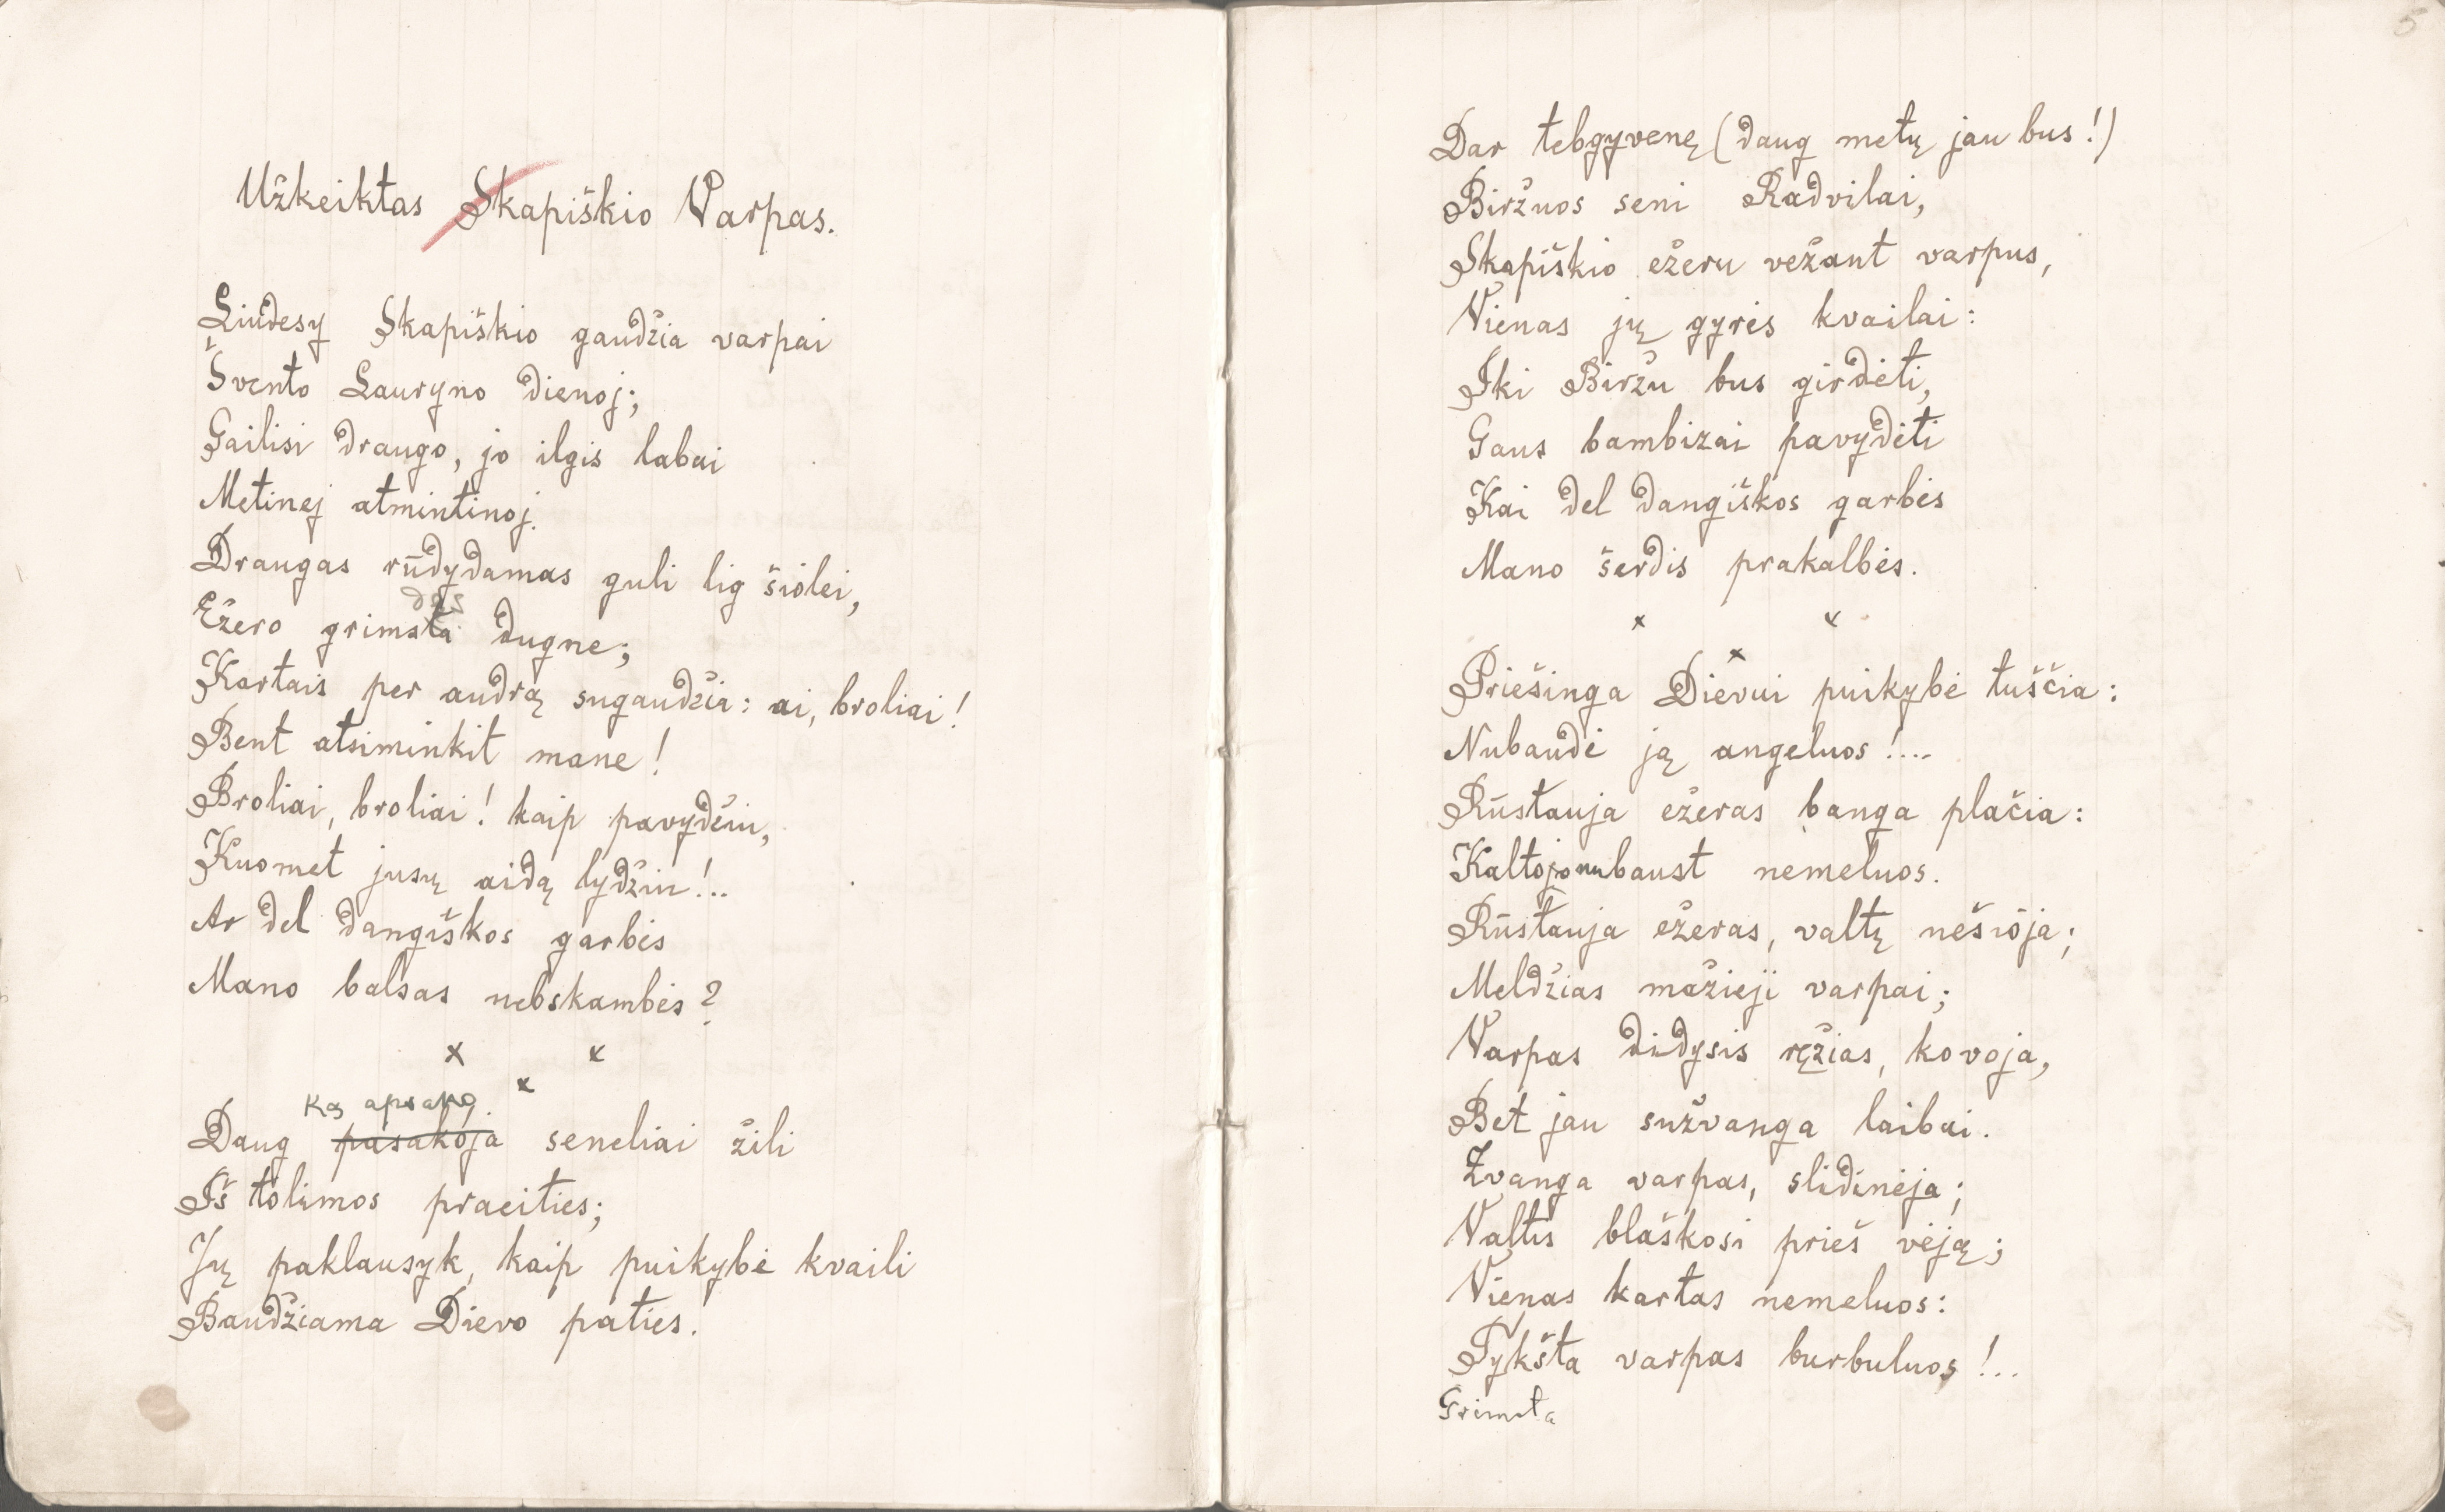 Užkeiktas Skapiškio Varpas.
Liūdesy Skapiškio gaudžia varpai
Švento Lauryno dienoj;
Gailisi draugo, jo ilgis labai
Metinej atmintinoj.
Draugas rūdydamas guli lig šiolei,
das
Ežero grimsta dugne;
Kartais per audrą sugaudžia: ai, broliai!
Bent atsiminkit mane!
Broliai, broliai! kaip pavydžiu,
Kuomet jusų aidą lydžiu!..
Ar del dangiškos garbės
Mano balsas nebskambės?
x x
x
Ką apsako
Daug pasakoja seneliai žili
Iš tolimos praeities;
Jų paklausyk, kaip puikybė kvaili
Baudžiama Dievo paties.
5
Dar tebgyvenę (daug metų jau bus!)
Biržuos seni Radvilai,
Skapiškio ežeru vežant varpus,
Vienas jų gyrės kvailai:
Iki Biržu bus girdėti,
Gaus bambizai pavydėti
Kai del dangiškos garbės
Mano šerdis prakalbės.
x x
x
Priešinga Dievui puikybė tuščia:
Nubaudė ją angeluos!...
Rūstauja ežeras banga plačia:
Kaltojo nubaust nemeluos.
Rūstauja ežeras, valtį nešioja;
Meldžias mažieji varpai;
Varpas didysis ręžias, kovoja,
Bet jau sužvanga laibai.
Žvanga varpas, slidinėja;
Valtis blaškosi prieš vėją;
Vienas kartas nemeluos:
Tykšta varpas burbuluos!...
Grimsta